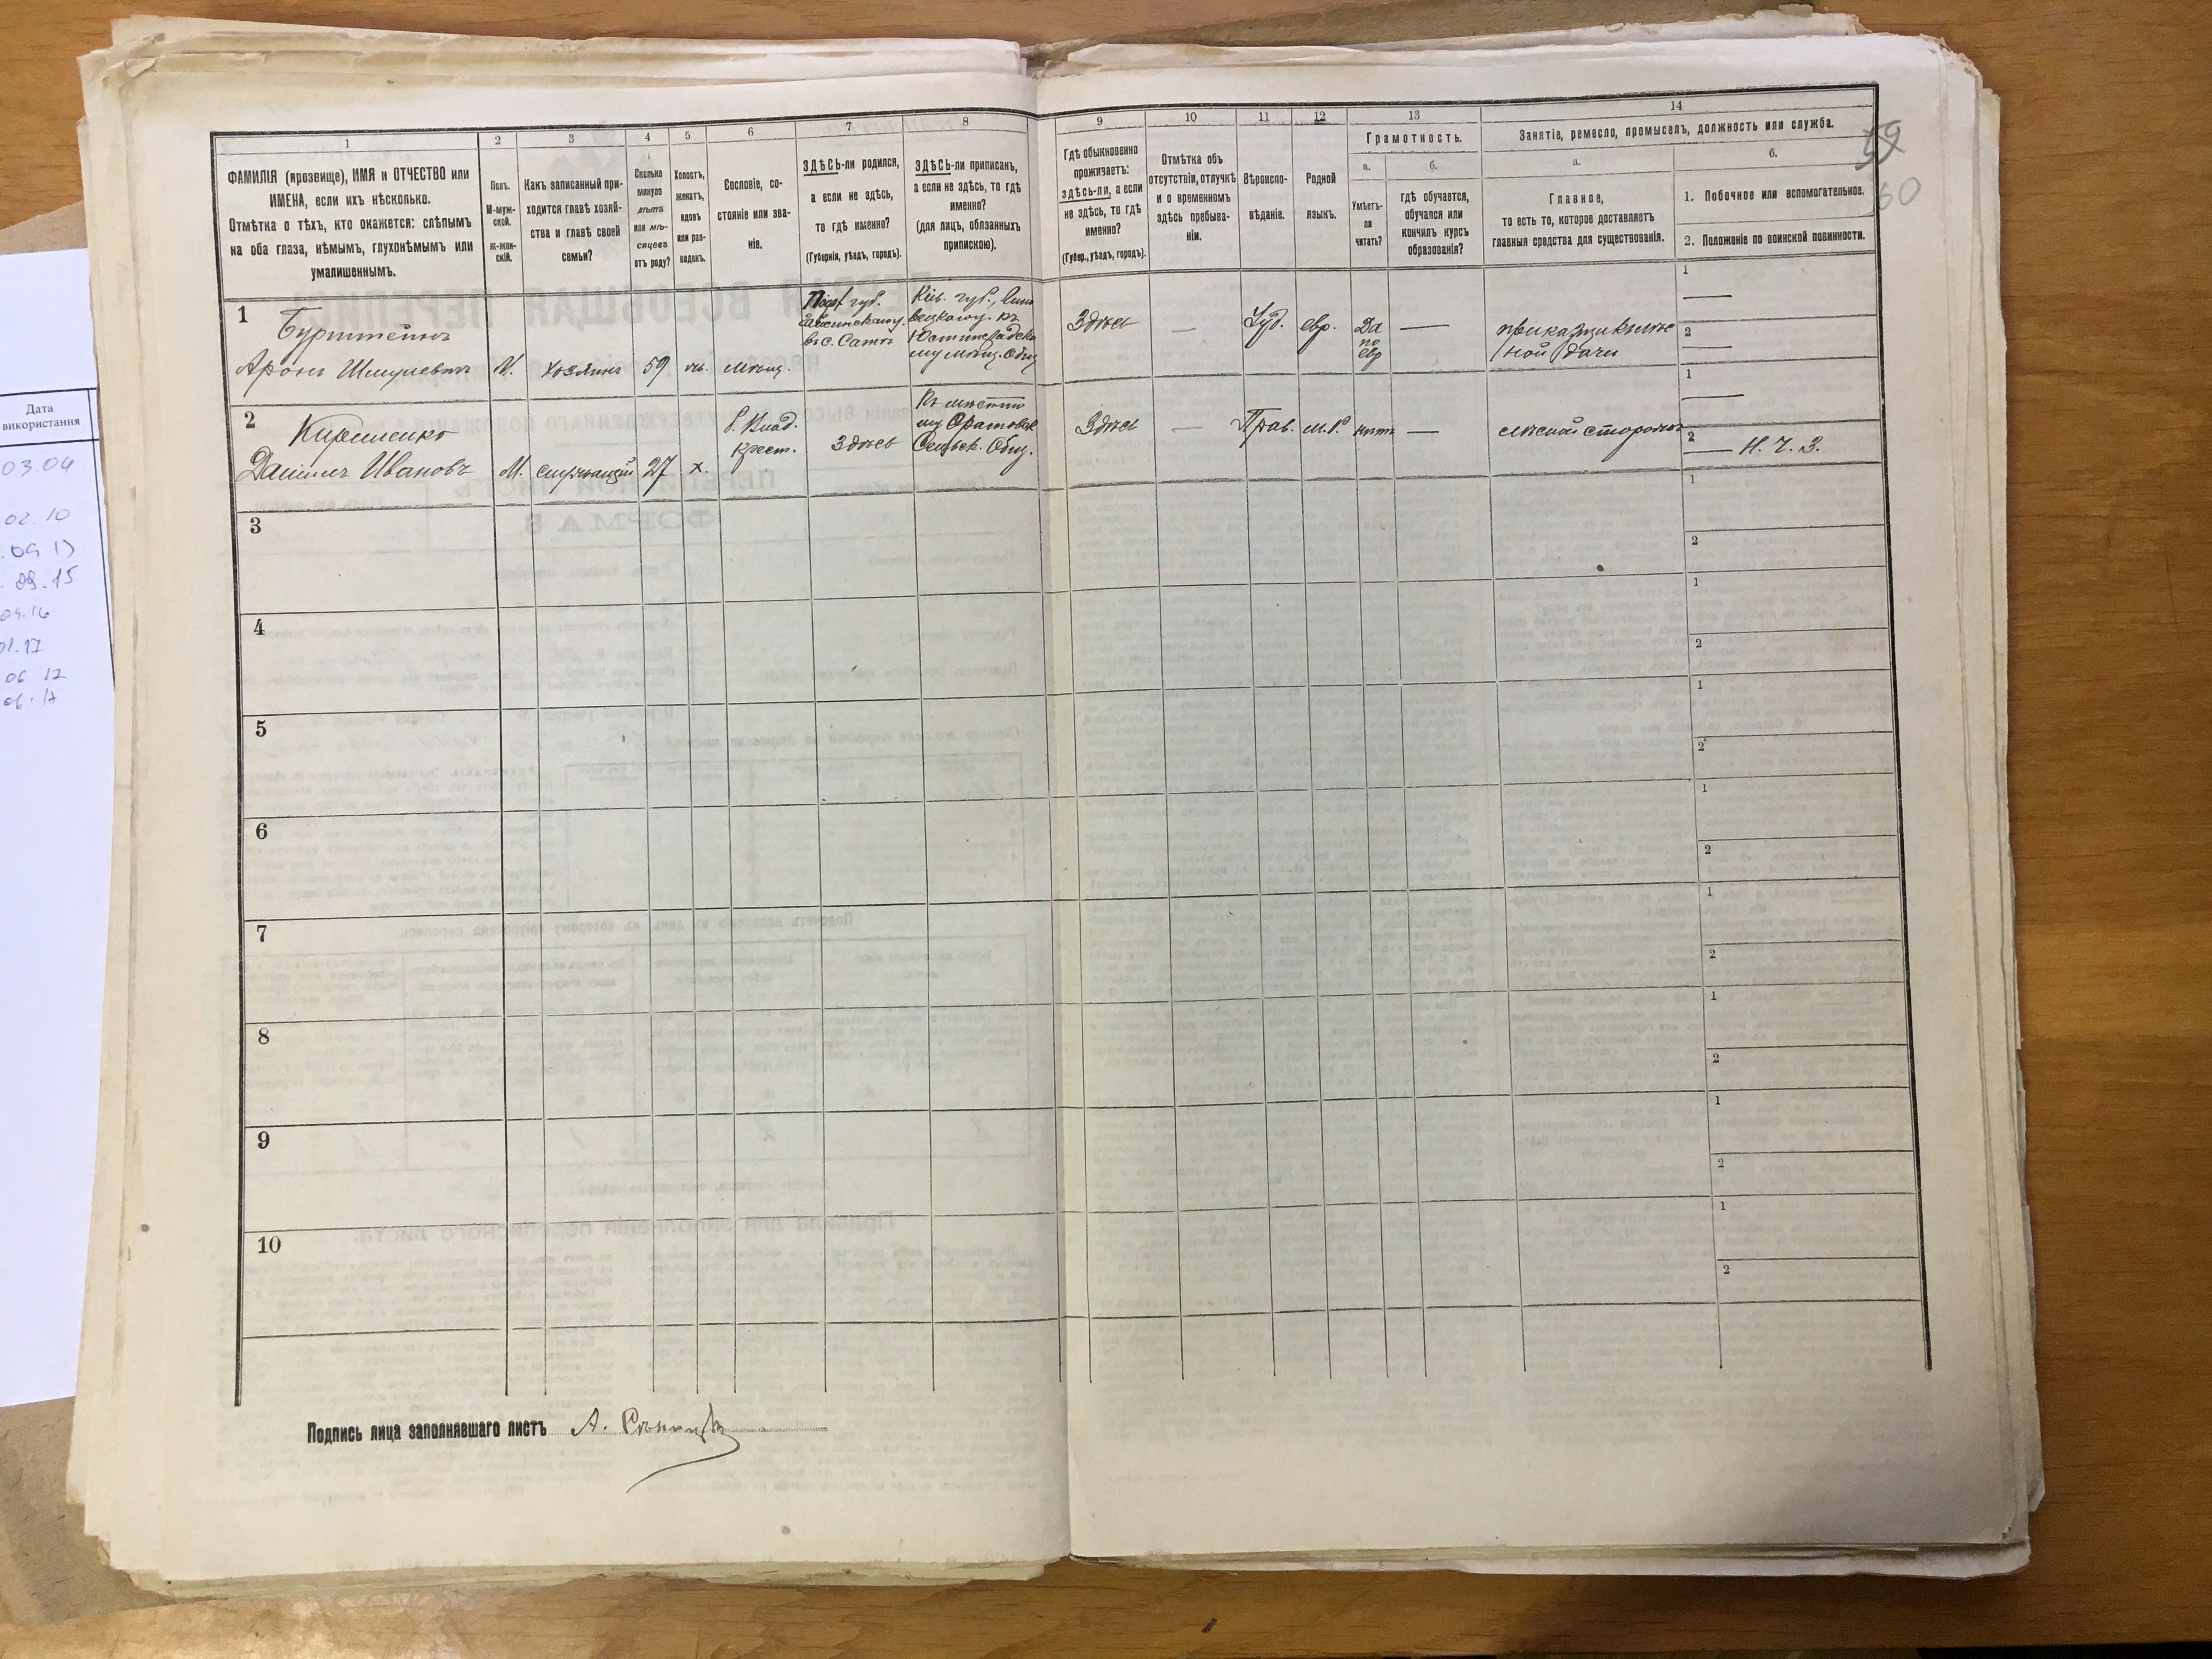 1
2
3
4
5
6
7
8
9
10
11
12
13
14
ФАМИЛІЯ (прозвище), ИМЯ и ОТЧЕСТВО или
ИМЕНА, если ихъ нѣсколько.
Отмѣтка о тѣхъ, кто окажется: слѣпымъ
на оба глаза, нѣмымъ, глухонѣмымъ или
умалишеннымъ.
Полъ.
М-муж-
ской.
Ж-жен-
скій.
Какъ записанный при-
ходится главѣ хозяй-
ства и главѣ своей
семьи?
Сколько
минуло
лѣтъ
или мѣ-
сяцевъ
отъ роду?
Холостъ,
женатъ,
вдовъ
или раз-
веденъ.
Сословіе, со-
стояніе или зва-
ніе.
ЗДѢСЬ-ли родился,
а если не здѣсь,
то гдѣ именно?
(Губернія, уѣздъ, городъ).
ЗДѢСЬ-ли приписанъ,
а если не здѣсь, то гдѣ
именно?
(для лицъ, обязанныхъ
припискою).
Гдѣ обыкновенно
проживаетъ:
ЗДѢСЬ-ли, а если
не здѣсь, то гдѣ
именно?
(Губер., уѣздъ, городъ).
Отмѣтка объ
отсутствіи, отлучкѣ
и о временномъ
здѣсь пребыва-
ніи.
Вѣроиспо-
вѣданіе.
Родной
языкъ.
Грамотность.
а.
б.
Умѣетъ-
ли
читать?
гдѣ обучается,
обучался или
кончилъ курсъ
образованія?
Занятіе, ремесло, промыселъ, должность или служба.
а.
б.
Главное,
то есть то, которое доставляетъ
главныя средства для существованія.
1. Побочное или вспомогательное.
2. Положеніе по воинской повинности.
59
60
1
Бурштейнъ
Аронъ Шмулевичъ
М.
хозяинъ
59
мѣщ.
губ.
въ с.
Кіев. губ., Липо
вецкаго у. къ
му мѣщ. Общ.
Здѣсь
—
Іуд.
евр.
Да
по
евр
—
ной дачи
1
—
2
—
2
Кириленко
Даніилъ Ивановъ
М.
служащій
27
х.
крест.
Здѣсь
Къ мѣстно
му
Сельск. Общ.
Здѣсь
—
Прав.
м. р.
нѣтъ
—
лѣсной сторожъ
1
—
2
— Н. Ч. З.
3
1
2
4
1
2
5
1
2
6
1
2
7
1
2
8
1
2
9
1
2
10
1
2
Подпись лица заполнявшаго листъ А.
Дата
використання
03.04
02.10
09.15
04.16
01.17
06.17
06.17